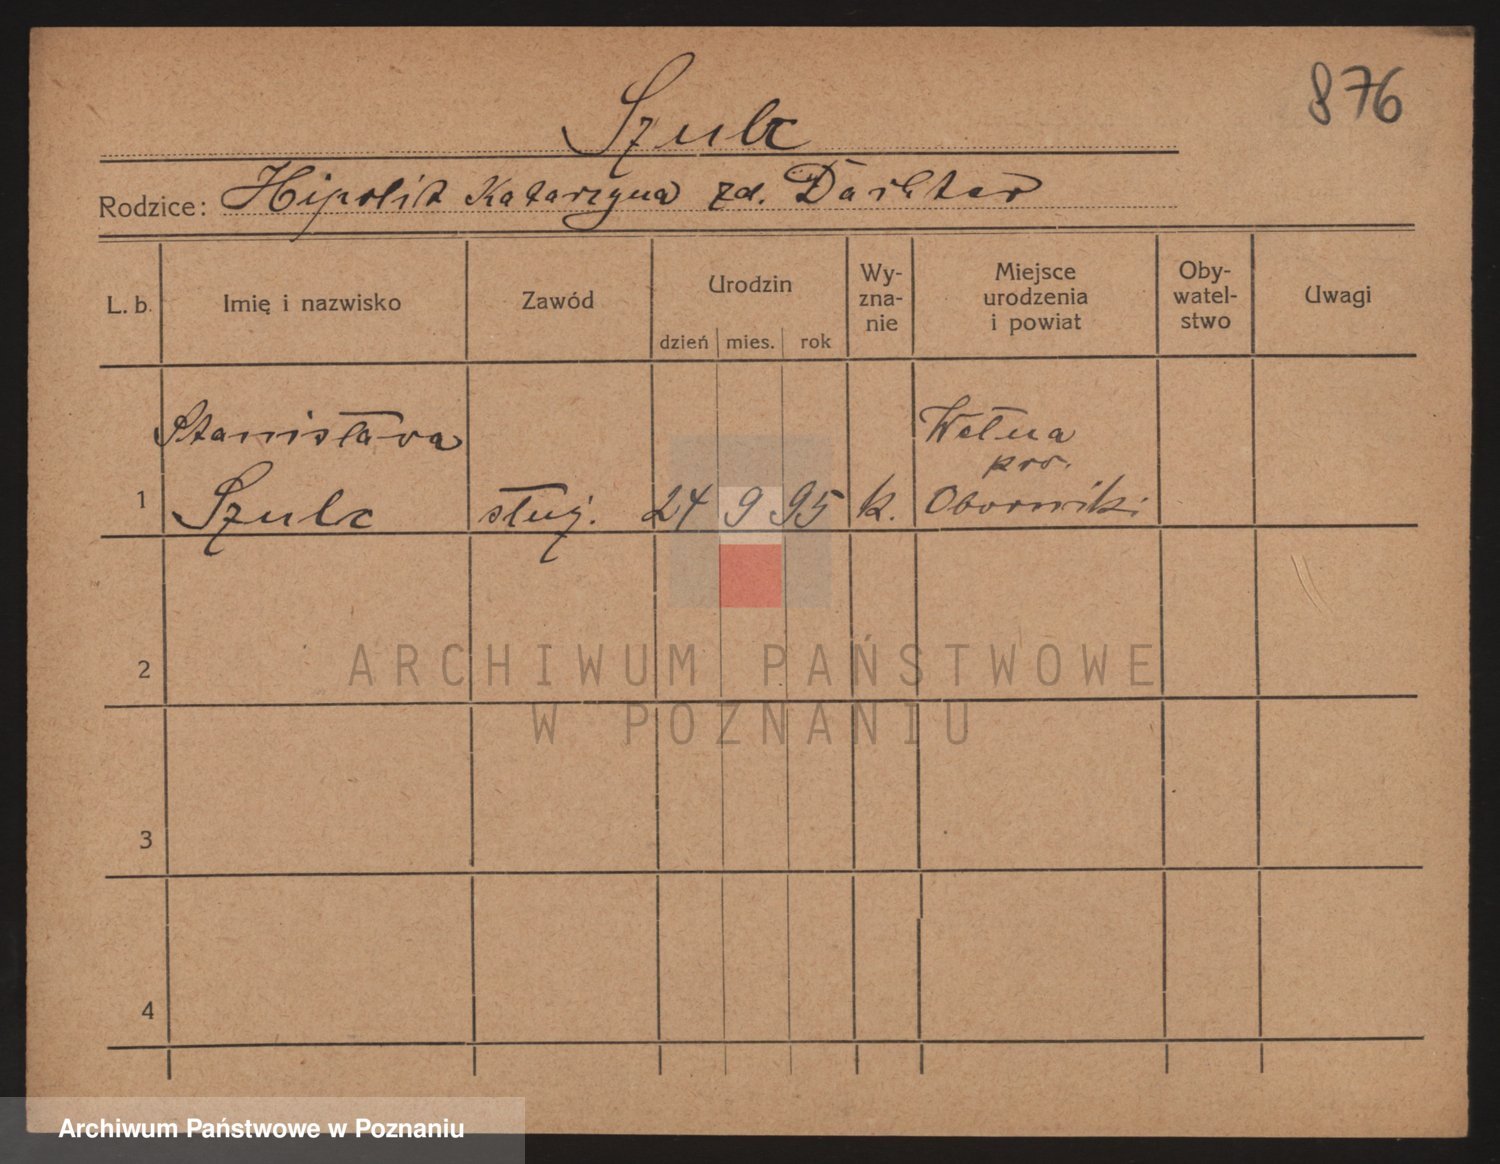 876
Szulc
Rodzice: Hipolit Katarzyna zd.
L. b. Imię i nazwisko Zawód Urodzin dzień mies. rok Wy-zna-nie Miejsce urodzenia i powiat Oby-watel-stwo Uwagi
Stanisława Wełna
pow.
1 Szulc służ. 24 9 95 k. Oborniki
2
ARCHIWUM PAŃSTWOWE
W POZNANIU
3
4
Archiwum Państwowe w Poznaniu